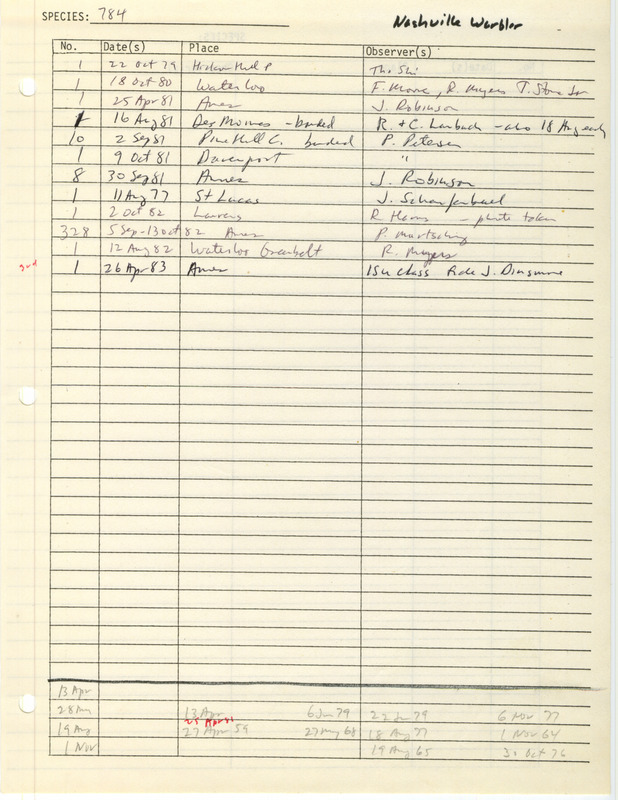 SPECIES: 784
Nashville Warbler
No. Date(s) Place Observer(s)
1 22 Oct 79 Hickory Hill P
1 18 Oct 80 Waterloo F. Moore, R. Myers T. Stone
1 25 Apr 81 Ames J. Robinson
1 16 Aug 81 Des Moines - banded R. + C. - also 18 Aug
10 2 Sep 81 Pine Hill C. banded P. Petersen
1 9 Oct 81 Davenport "
8 30 Sep 81 Ames J. Robinson
1 11 Aug 77 St Lucas J. Scharfenkamp
1 2 Oct 82 Laurens R. Harms - photo taken
328 5 Sep-13 Oct 82 Ames P. Martsching
1 12 Aug 82 Waterloo Greenbelt R. Myers
2nd 1 26 Apr 83 Ames ISU class J. Dinsmore
13 Apr
28 13 Apr 6 Jun 79 22 Jun 79 6 Nov 77
25 Apr 81
19 Aug 27 Apr 59 27 May 68 18 Aug 77 1 Nov 64
1 Nov 19 Aug 65 30 Oct 76